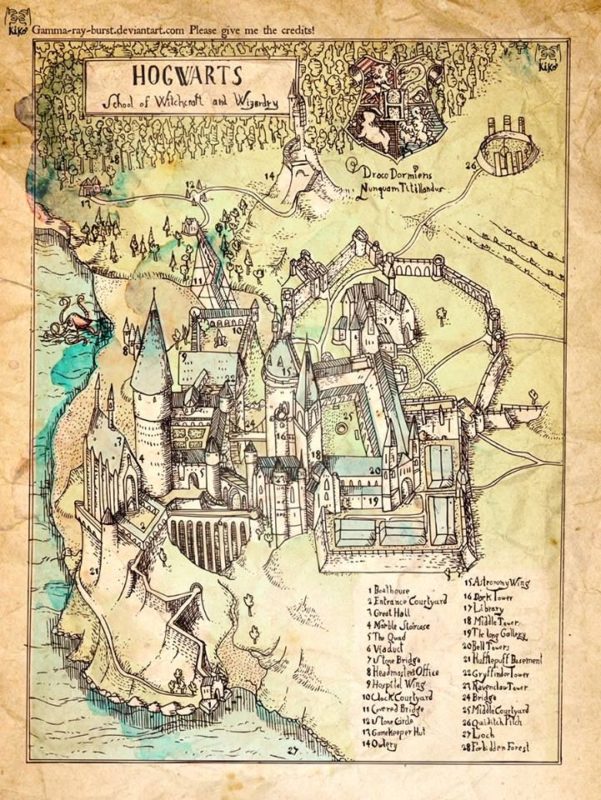 KIKO Gamma-ray-burst.deviantart.com Please give me the credits!
KIKO
HOGWARTS
School of Witchcraft and Wizardry
Draco Dormiens
Nunquam Titillandus
26
14
12
13
17
11
9
15
8
16
22
24
25
3
4
18
20
19
2
21
27
1 Boathouse
2 Entrance Courtyard
3 Great Hall
4 Marble Staircase
5 The Quad
6 Viaduct
7 Stone Bridge
8 Headmasters Office
9 Hospital Wing
10 Clock Courtyard
11 Covered Bridge
12 Stone Circle
13 Gamekeeper Hut
14 Owlery
15 Astronomy Wing
16 Dark Tower
17 Library
18 Middle Tower
19 The long Gallery
20 Bell Towers
21 Hufflepuff Basement
22 Gryffindor Tower
23 Ravenclaw Tower
24 Bridge
25 Middle Courtyard
26 Quidditch Pitch
27 Loch
28 Forbidden Forest